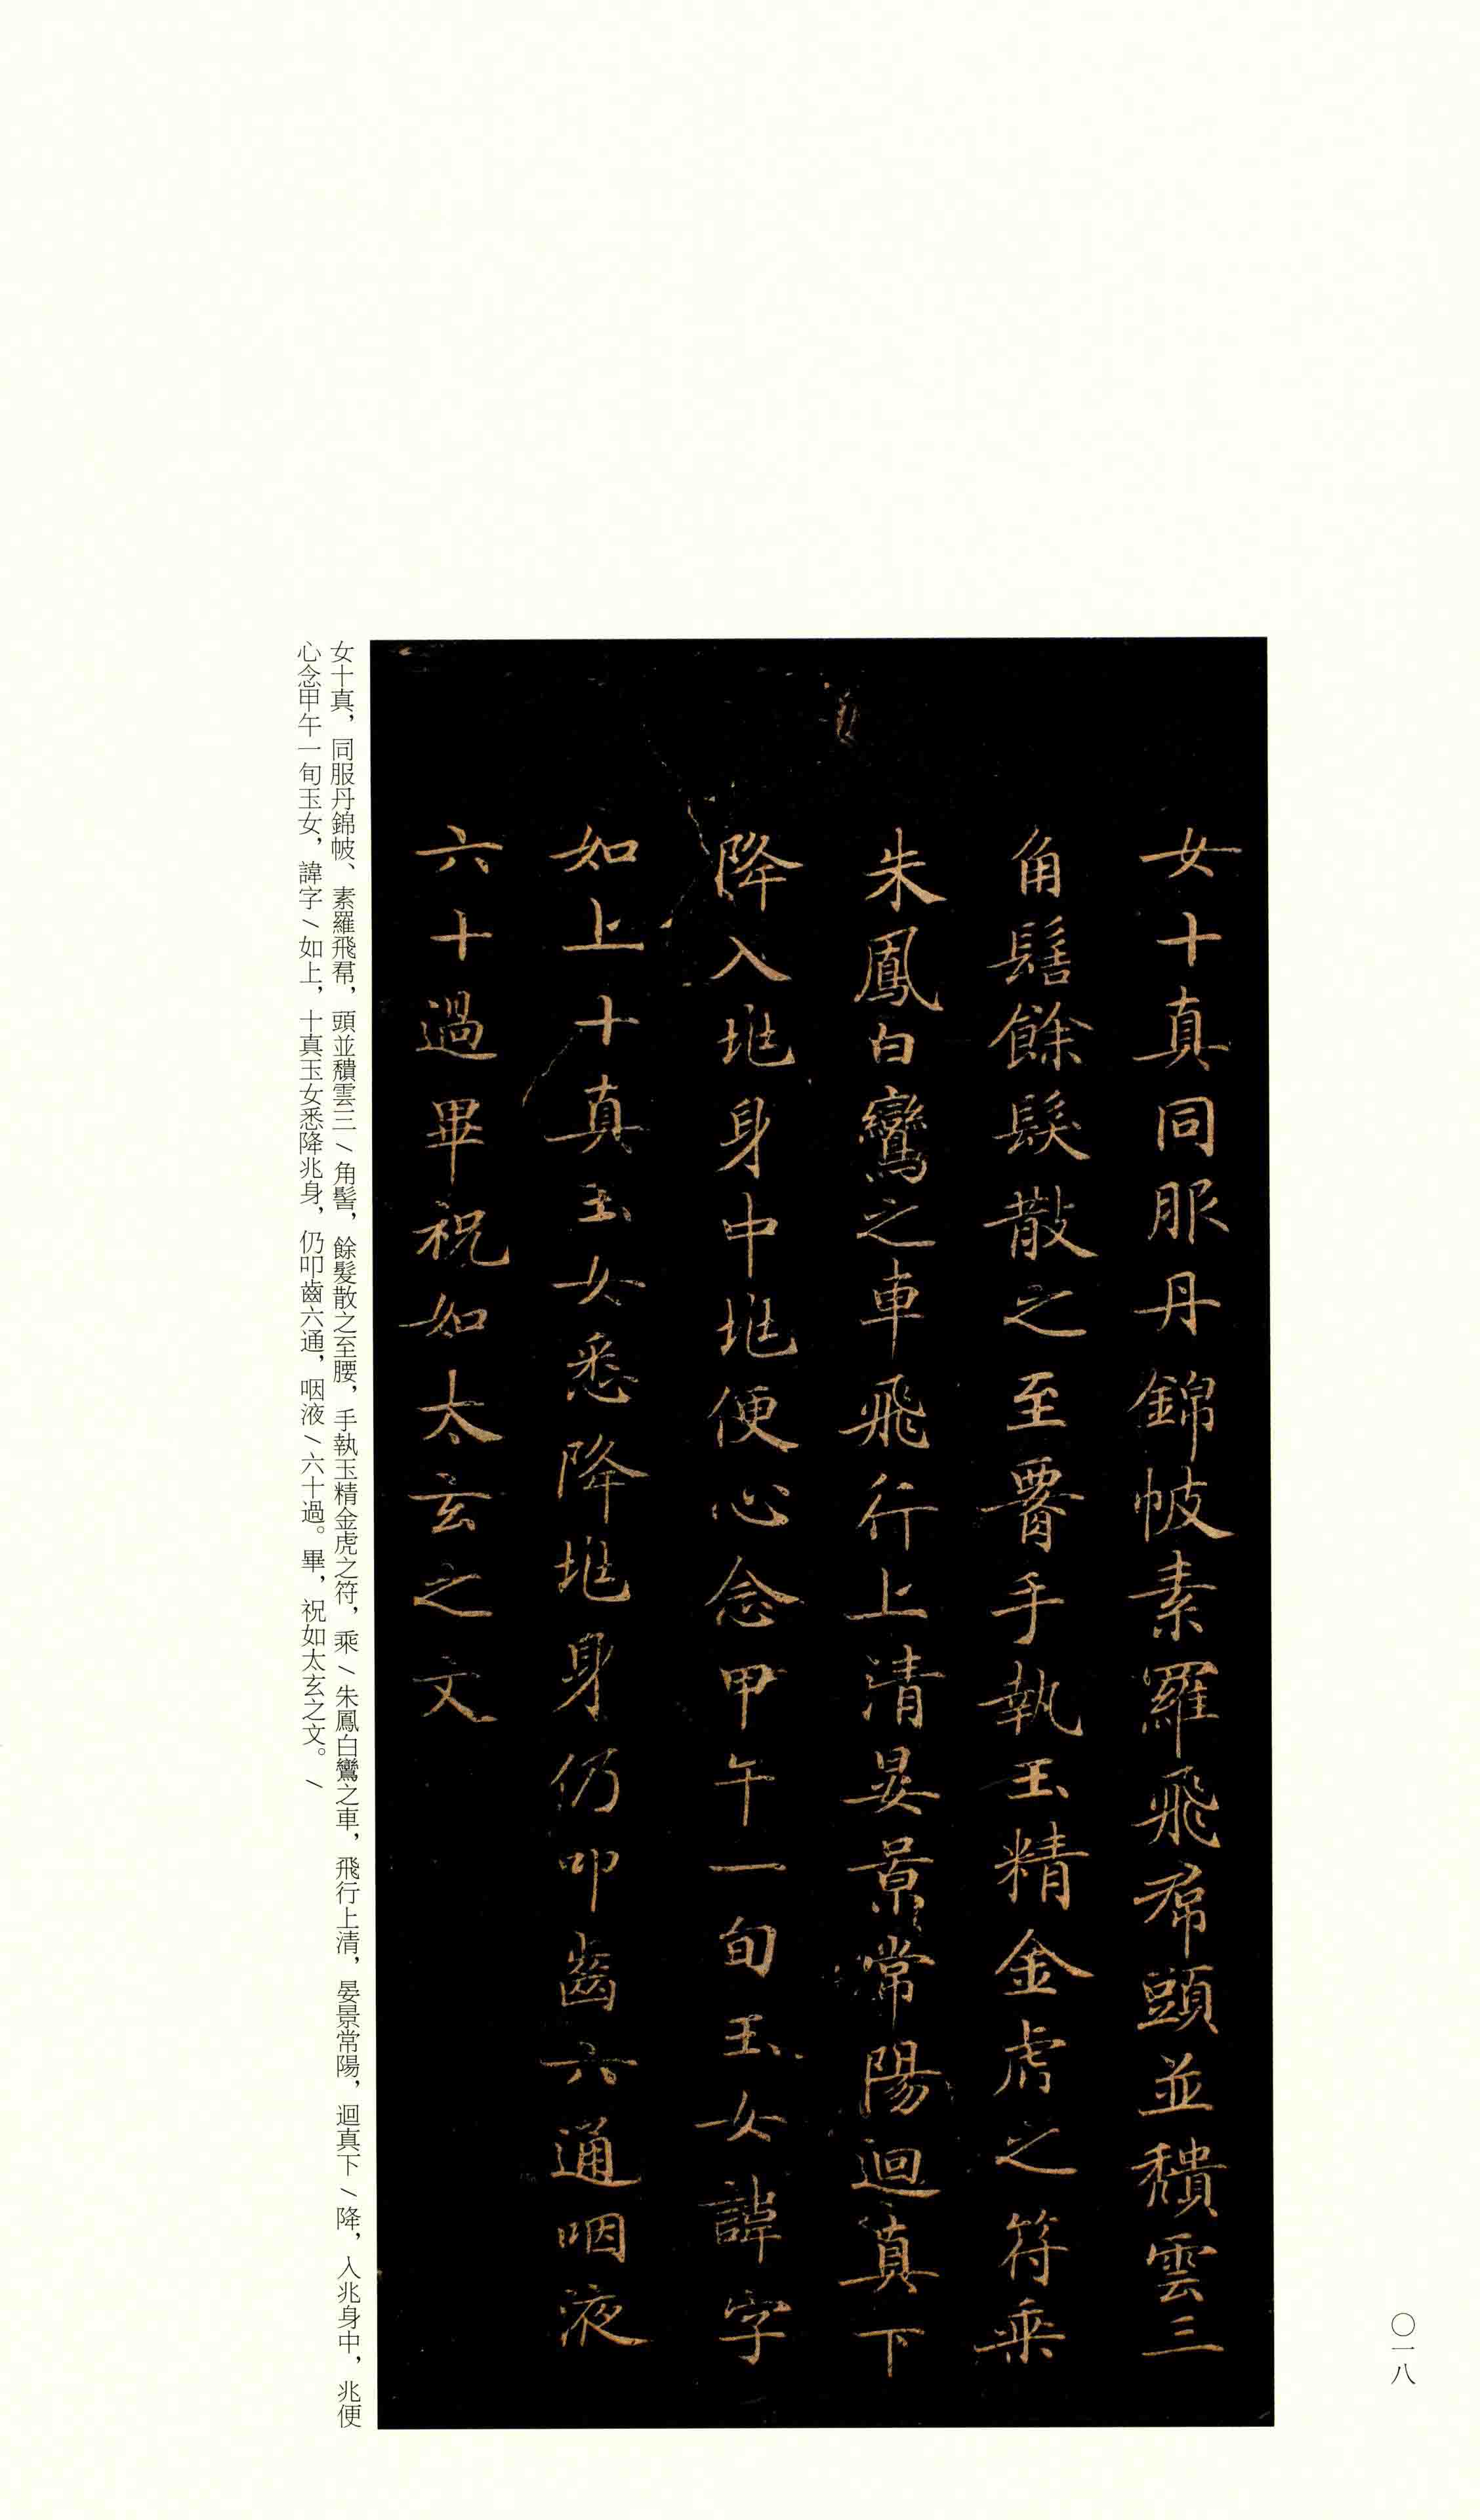 女十真同服丹錦帔素羅飛帬頭並穨雲三
角髻餘髮散之至署手執玉精金虎之符乘
朱鳳白鸞之車飛行上清晏景常陽迴真下
降入兆身中兆便心念甲午一旬玉女諱字
如上十真玉女悉降兆身仍叩齒六通咽液
六十過畢祝如太玄之文
女十真，同服丹錦帔、素羅飛帬，頭並穨雲三/角髻，餘髮散之至腰，手執玉精金虎之符，乘/朱鳳白鸞之車，飛行上清，晏景常陽，迴真下/降，入兆身中，兆便
心念甲午一旬玉女，諱字/如上，十真玉女悉降兆身，仍叩齒六通，咽液/六十過。畢，祝如太玄之文。/
〇一八